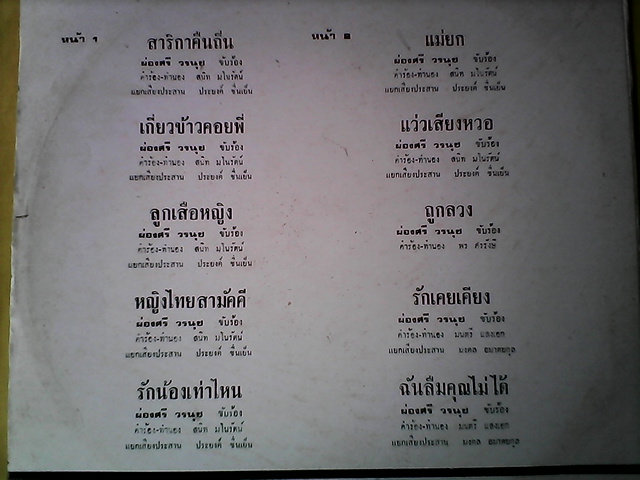 หน้า ๑
สาริกาคืนถิ่น
ผ่องศรี วรนุช ขับร้อง
คำร้อง-ทำนอง สนิท มโนรัตน์
แยกเสียงประสาน ประยงค์ ชื่นเย็น
เกี่ยวข้าวคอยพี่
ผ่องศรี วรนุช ขับร้อง
คำร้อง-ทำนอง สนิท มโนรัตน์
แยกเสียงประสาน ประยงค์ ชื่นเย็น
ลูกเสือหญิง
ผ่องศรี วรนุช ขับร้อง
คำร้อง-ทำนอง สนิท มโนรัตน์
แยกเสียงประสาน ประยงค์ ชื่นเย็น
หญิงไทยสามัคคี
ผ่องศรี วรนุช ขับร้อง
คำร้อง-ทำนอง สนิท มโนรัตน์
แยกเสียงประสาน ประยงค์ ชื่นเย็น
รักน้องเท่าไหน
ผ่องศรี วรนุช ขับร้อง
คำร้อง-ทำนอง สนิท มโนรัตน์
แยกเสียงประสาน ประยงค์ ชื่นเย็น
หน้า ๒
แม่ยก
ผ่องศรี วรนุช ขับร้อง
คำร้อง-ทำนอง สนิท มโนรัตน์
แยกเสียงประสาน ประยงค์ ชื่นเย็น
แว่วเสียงหวอ
ผ่องศรี วรนุช ขับร้อง
คำร้อง-ทำนอง สนิท มโนรัตน์
แยกเสียงประสาน ประยงค์ ชื่นเย็น
ถูกลวง
ผ่องศรี วรนุช ขับร้อง
คำร้อง-ทำนอง พร
รักเคยเคียง
ผ่องศรี วรนุช ขับร้อง
คำร้อง-ทำนอง มนตรี แสงเอก
แยกเสียงประสาน มงคล อมาตยกุล
ฉันลืมคุณไม่ได้
ผ่องศรี วรนุช ขับร้อง
คำร้อง-ทำนอง มนตรี แสงเอก
แยกเสียงประสาน มงคล อมาตยกุล